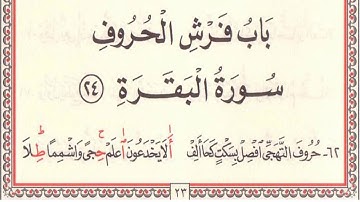 بَابُ فَرْشِ الْحُرُوفِ
سُورَةُ الْبَقَرَةِ ٢٤
٦٢- حُرُوفَ التَّهَجِّي افْصِلْ بِسَكْتٍ كَحَا أَلِفْ أَلَا يَخْدَعُونَ اعْلَمْ حِجىً وَاشْمِمًا طِلَا
٢٣